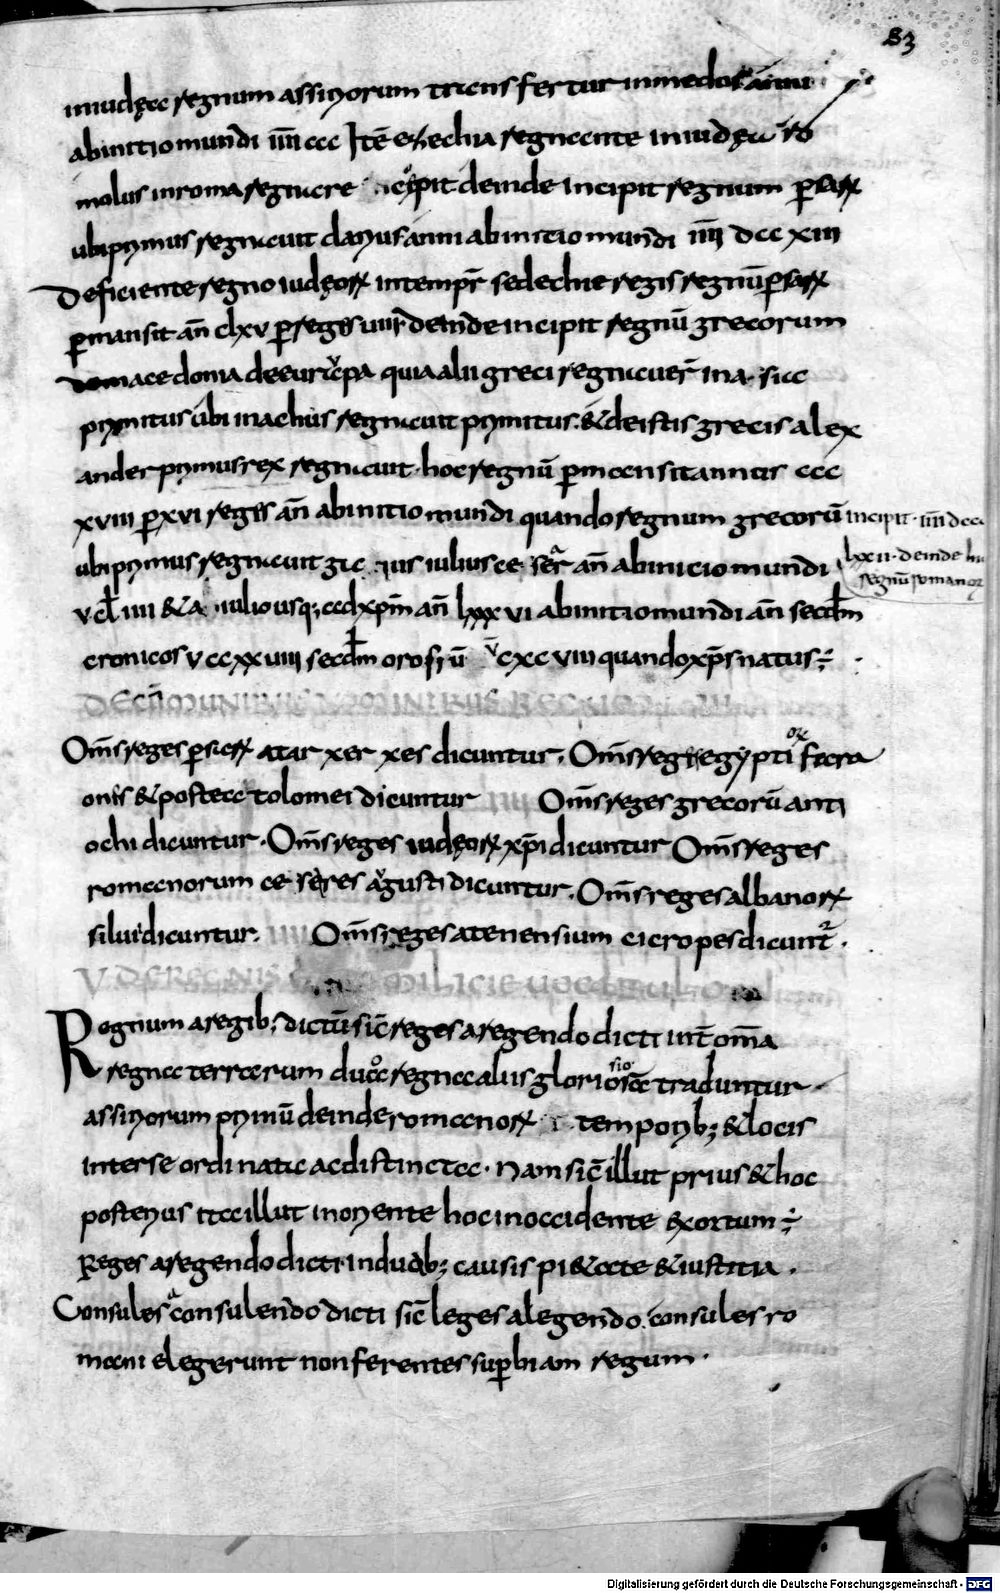 83
iniudęa regnum assiriorum triens fertur inmedos anni
abinitio mundi IIII CCC Itē ezechia regnante iniudęa ro
molus inroma regnare incipit deinde incipit regnum ꝑsarꝝ
ubi primus regnauit darius anni abinitio mundi IIII DCC XIII
Deficiente regno iudęorꝝ intempr̄ sedechie regis regnū ꝑsarꝝ
ꝑmansit an̄ clxv ꝑ reges deinde incipit regnū grecorum
macedonia deeuricpa quia alii greci regnauer̄ ina sia
primitus ubi inachus regnauit primitus. & deistis grecis alex
ander primus rex regnauit. hoc regnū ꝑmansit annis CCC
XVIII ꝑ XVI reges an̄ abinitio mundi quando regnum grecorū incipit. IIII dccc
lxxii. deinde
regnū romanoꝝ
ubi primus regnauit iulius ce ser an̄ abinicio mundi
& a iulio usq; ad xp̄m an̄ lxxxvi abinitio mundi an̄ secdm̄
cronicos V CC XX VIIII secdm̄ orosiū V CXC VIII quando xp̄s natus ÷
DE CŌMUNIBUS NOMINIBUS REGUM
Om̄s reges ꝑsarꝝ atar xer xes dicuntur. Om̄s reg egyptioꝝ fara
onis & postea tolomei dicuntur Om̄s reges grecorū anti
ochi dicuntur. Om̄s reges iudęorꝝ xp̄i dicuntur Om̄s reges
romanorum ce seres agusti dicuntur. Om̄s reges albanorꝝ
silui dicuntur. IIII Om̄s reges atenensium cicropes dicunt̄.
V DE REGNIS MILICIE UOCABULO
Regnum a regib; dictū sic̄ reges a regendo dicti int̄ om̄a
regna terrarum duo regna caliis gloriosa traduntur.
assiriorum primū deinde romanorꝝ temporib; & locis
inter se ordinata ac distincta. Nam sic̄ illut prius & hoc
posterius ita illut inoriente hoc inoccidente exortum ÷
Reges a regendo dicti induab; causis pi&ate & iustitia.
Consules a consulendo dicti sic̄ leges a legendo. consules ro
mani elegerunt non ferentes suꝑbiam regum.
Digitalisierung gefördert durch die Deutsche Forschungsgemeinschaft - DFG